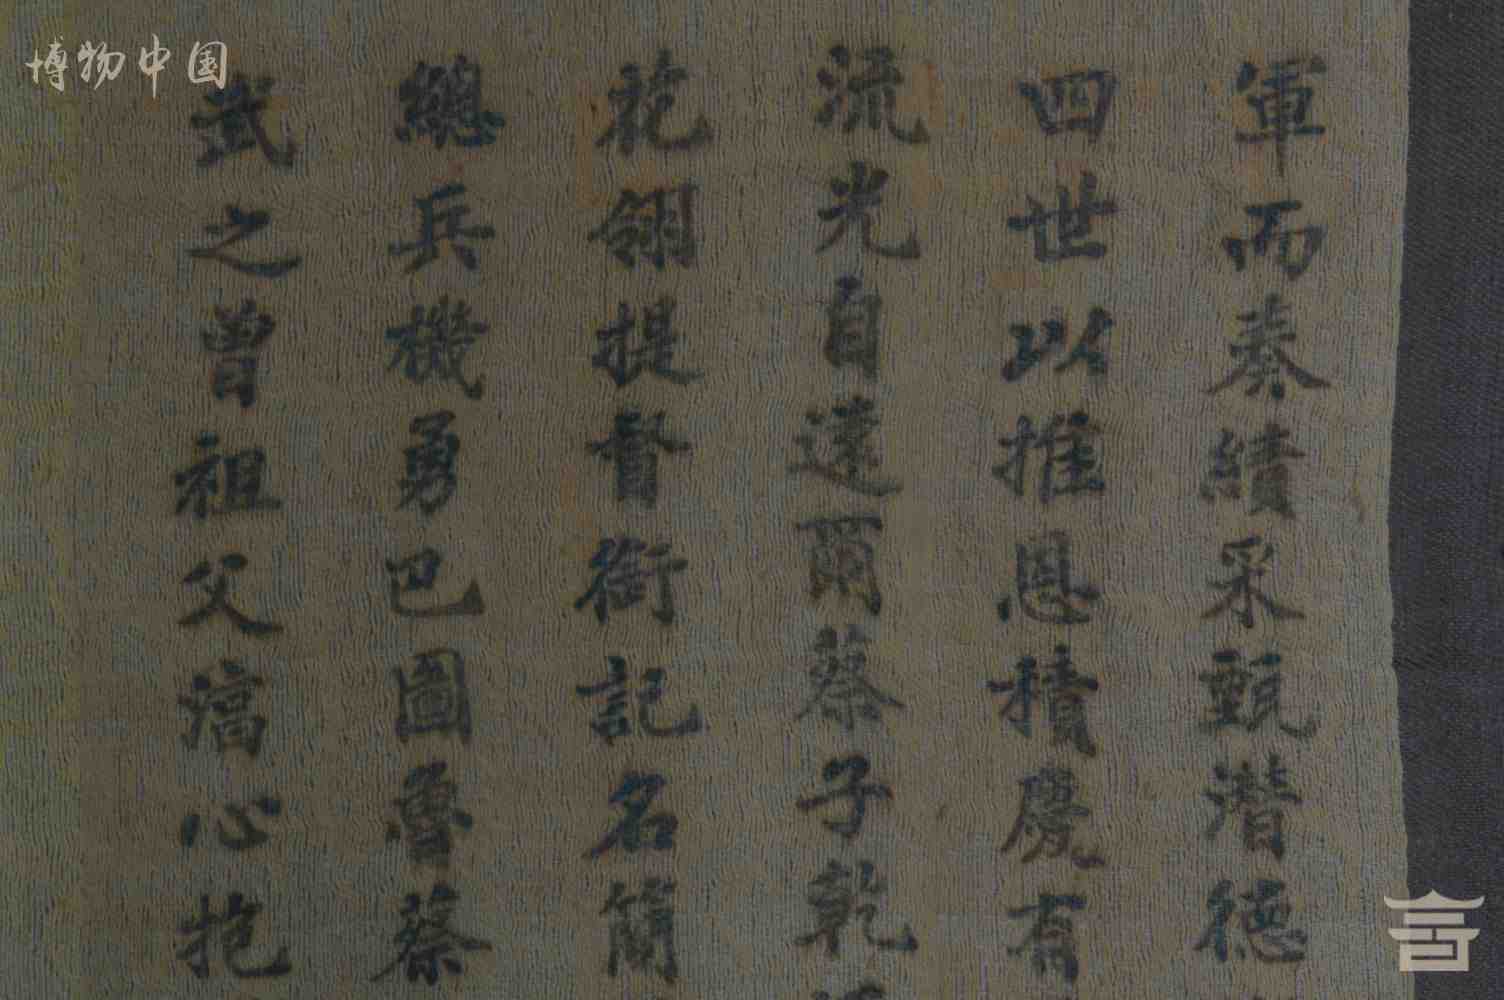 博物中国
軍而奏績采甄潛德
四世以推恩積慶有
流光自遠爾蔡子乾
花翎提督銜記名簡
總兵機勇巴圖魯蔡
武之曾祖父滈心抱